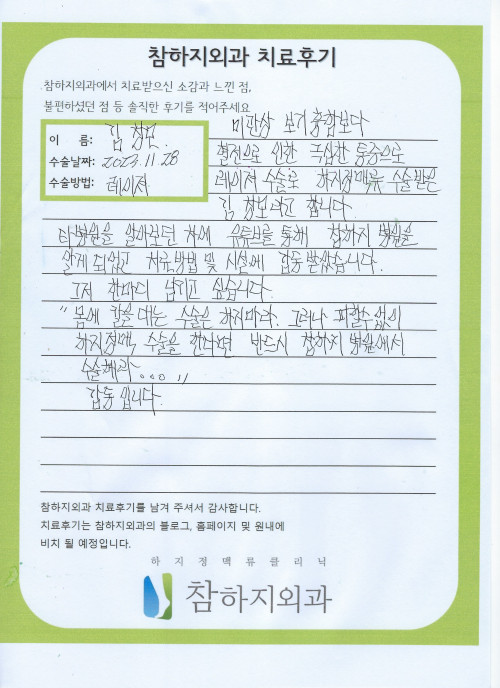 참하지외과 치료후기
참하지외과에서 치료받으신 소감과 느낀 점,
불편하셨던 점 등 솔직한 후기를 적어주세요
이 름: 김창모.
수술날짜: 2023.11.28
수술방법: 레이져
미관상 보기 흉함보다
혈전으로 인한 극심한 통증으로
레이져 수술로 하지정맥류 수술받은
김창모라고 합니다.
타병원을 알아보던 차에 유튜브를 통해 참하지 병원을
알게 되었고 치료방법 및 시설에 감동 받았습니다.
그저 한마디 남기고 싶습니다.
"몸에 칼을 대는 수술은 하지마라. 그러나 피할수없이
하지정맥 수술을 한다면 반드시 참하지 병원에서
수술해라...."
감동입니다.
참하지외과 치료후기를 남겨 주셔서 감사합니다.
치료후기는 참하지외과의 블로그, 홈페이지 및 원내에
비치 될 예정입니다.
하지정맥류클리닉
참하지외과